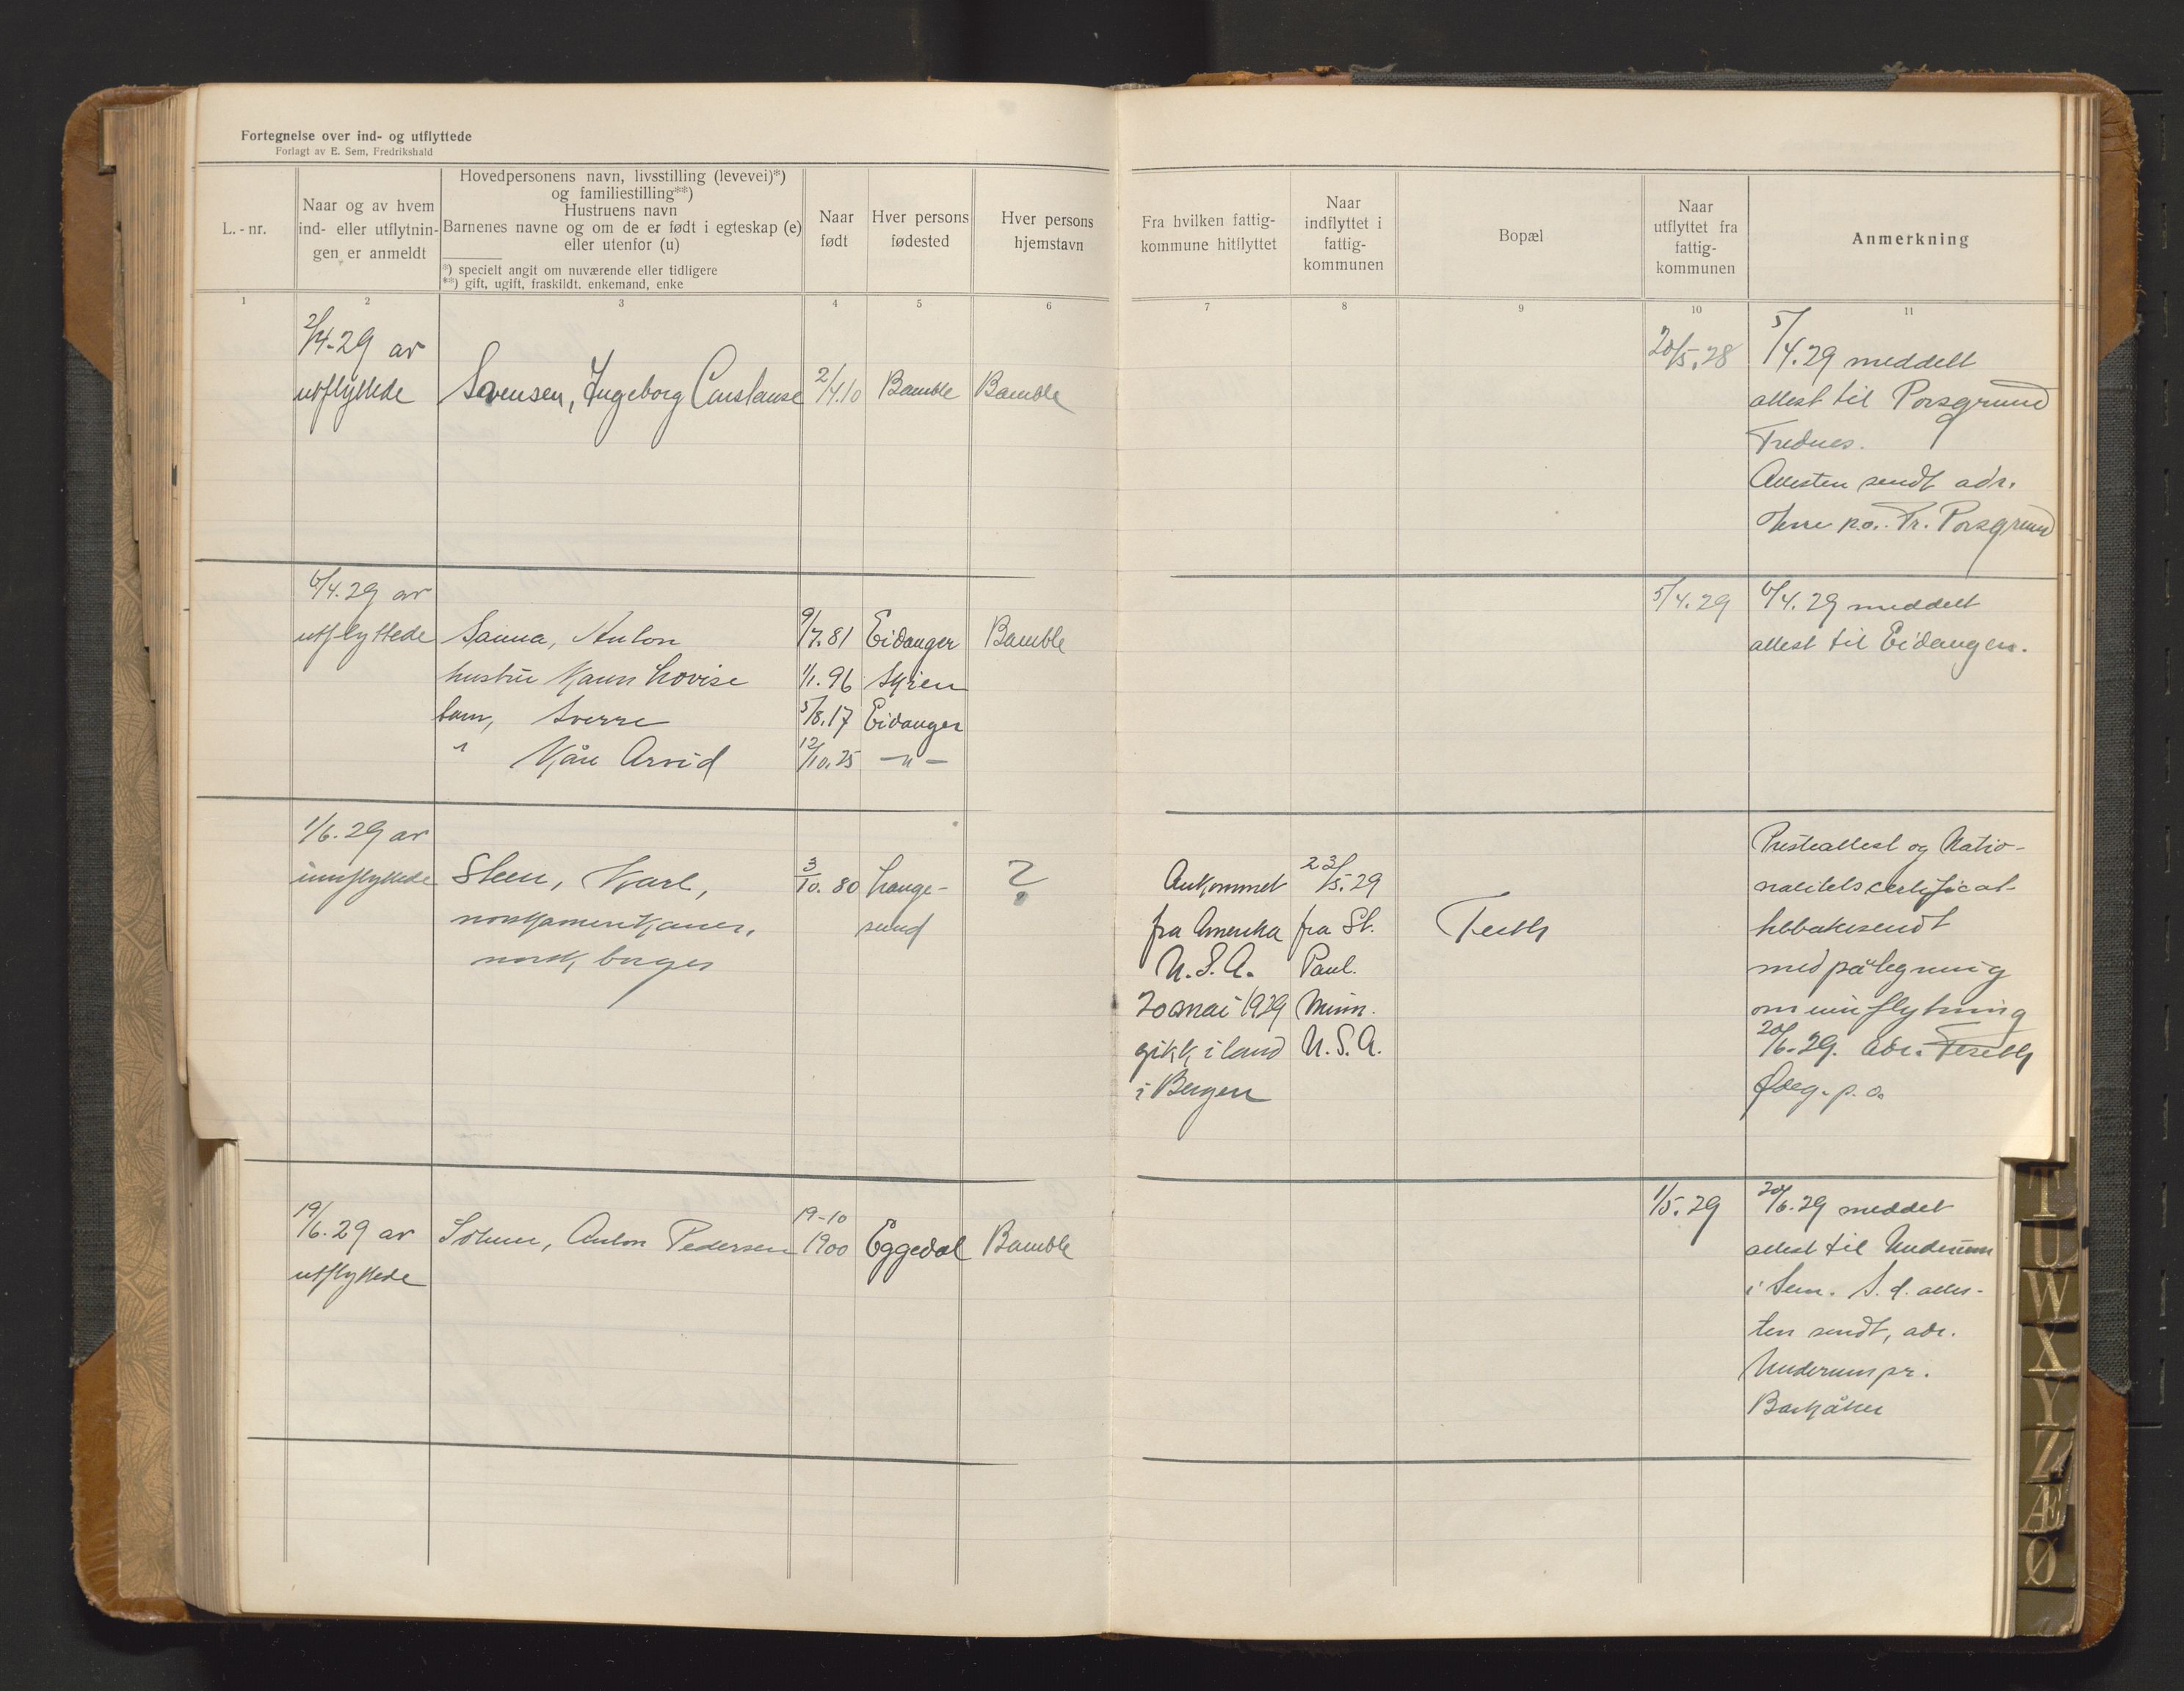 Fortegnelse over ind- og utflyttede
Forlagt av E. Sem, Fredrikshald
L.-nr.
Naar og av hvem
ind- eller utflytnin-
gen er anmeldt
Hovedpersonens navn, livsstilling (levevei)*)
og familiestilling**)
Hustruens navn
Barnenes navne og om de er født i egteskap (e)
eller utenfor (u)
*) specielt angit om nuværende eller tidligere
**) gift, ugift, fraskildt. enkemand, enke
Naar
født
Hver persons
fødested
Hver persons
hjemstavn
Fra hvilken fattig-
kommune hitflyttet
Naar
indflyttet i
fattig-
kommunen
Bopæl
Naar
utflyttet fra
fattig-
kommunen
Anmerkning
1 2 3 4 5 6 7 8 9 10 11
2/4-29 av
utflyttede
Svensen, Ingeborg
2/4.10
Bamble
Bamble
20/5.28
5/4.29 meddelt
attest til Porsgrund
Frednes.
Attesten sendt adr.
p.o. Pr. Porsgrund
6/4.29 av
utflyttede
Sanna, Anton
9/7.81
Eidanger
Bamble
hustru Karen Lovise
1/1.96
Skien
barn, Sverre
5/8.17
Eidanger
" Kåre Arvid
12/10.25
-"-
5/4.29
6/4.29 meddelt
attest til Eidanger.
1/6.29 av
innflyttede
Steen, Karl,
norskamerikaner,
norsk borger
3/10.80
Lange-
sund
?
Ankommet
fra Amerika
U.S.A.
20 mai 1929
gikk i land
i Bergen
23/5.29
fra St.
Paul.
Minn.
U.S.A.
Presteattest og Natio-
nalitetscertificat
tilbakesendt
med påtegning
om innflytning
20/6.29. adr.
p.o.
19/6.29 av
utflyttede
Anton Pedersen
19-10
1900
Eggedal
Bamble
1/5.29
20/6.29 meddelt
attest til Undrum
i Sem. S.d. attes-
ten sendt, adr.
Undrum pr.
Barkåker
T
U
W
X
Y
Z
Æ
Ø